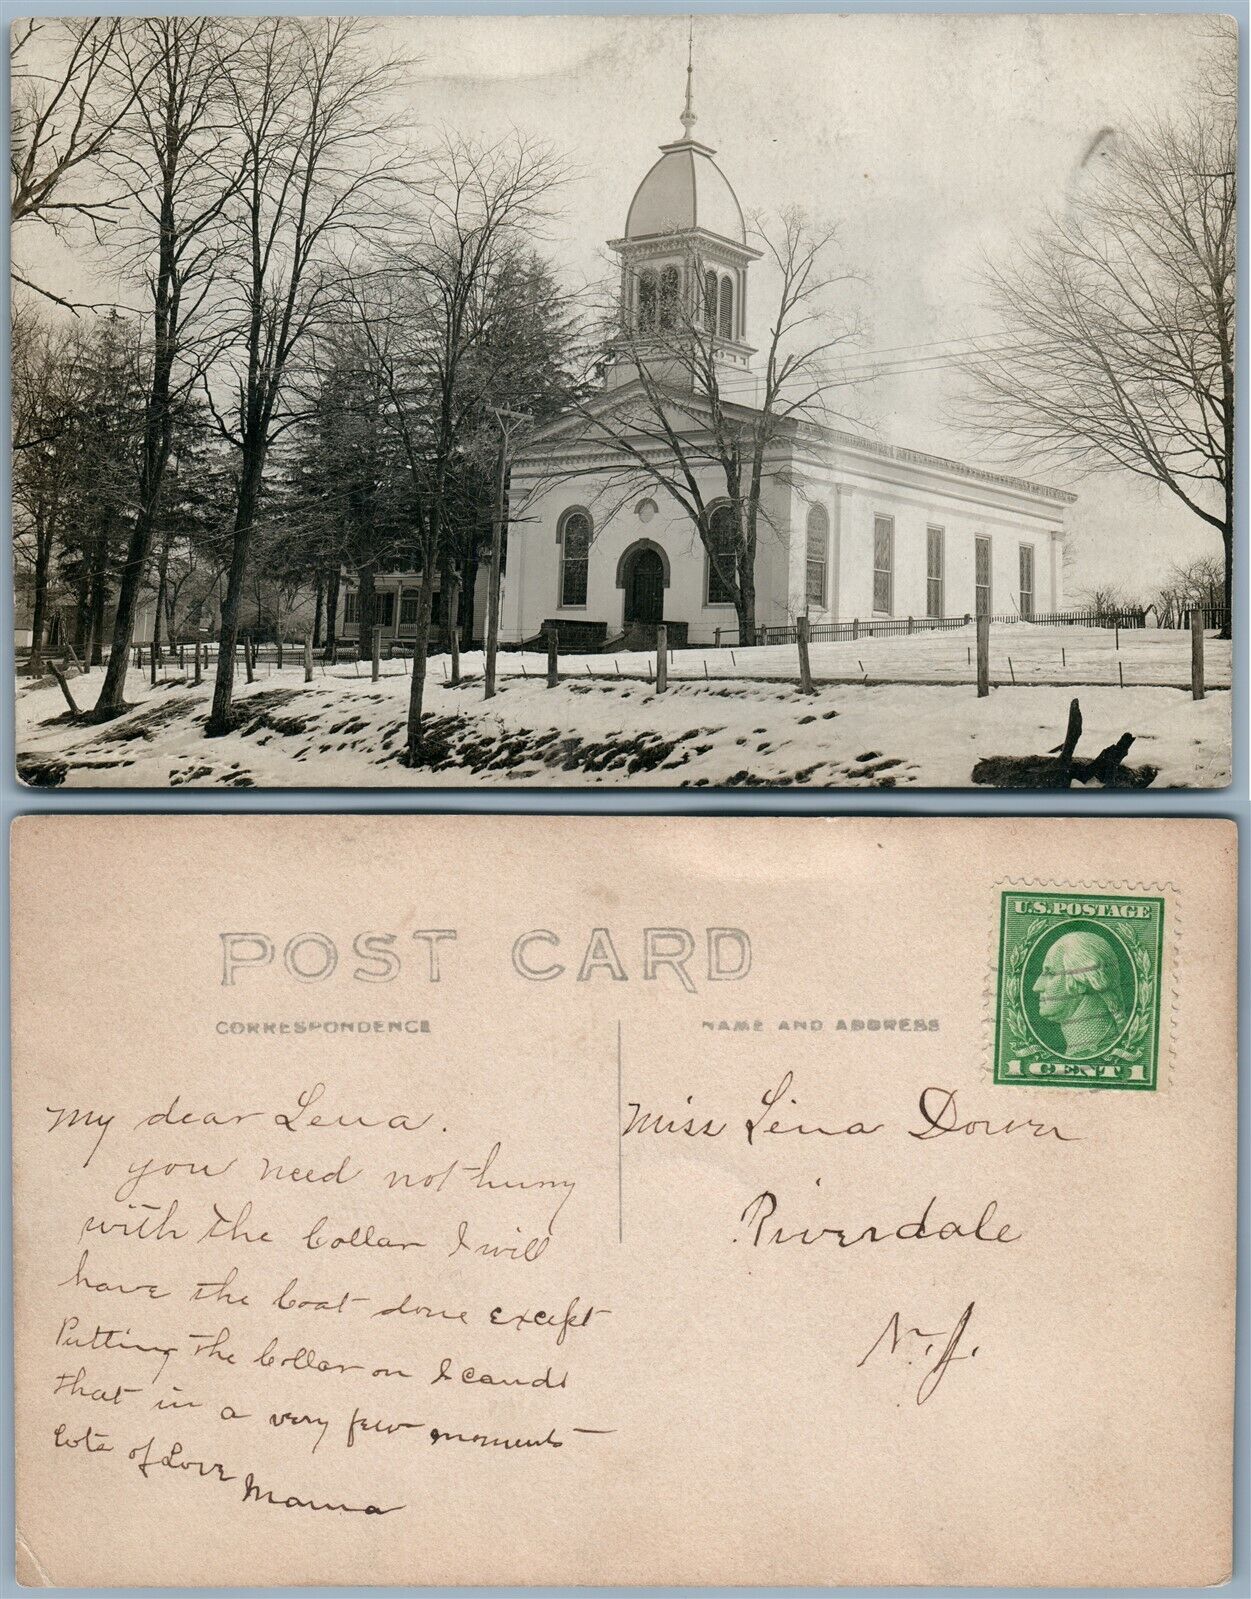 POST CARD
CORRESPONDENCE
NAME AND ADDRESS
U.S. POSTAGE
1 CENT 1
My dear Lena.
you need not hurry
with the Collar I will
have the Coat done except
Putting the Collar on I can do
that in a very few moments
Lots of Love
Mama
Miss Lena Dower
Riverdale
N.J.